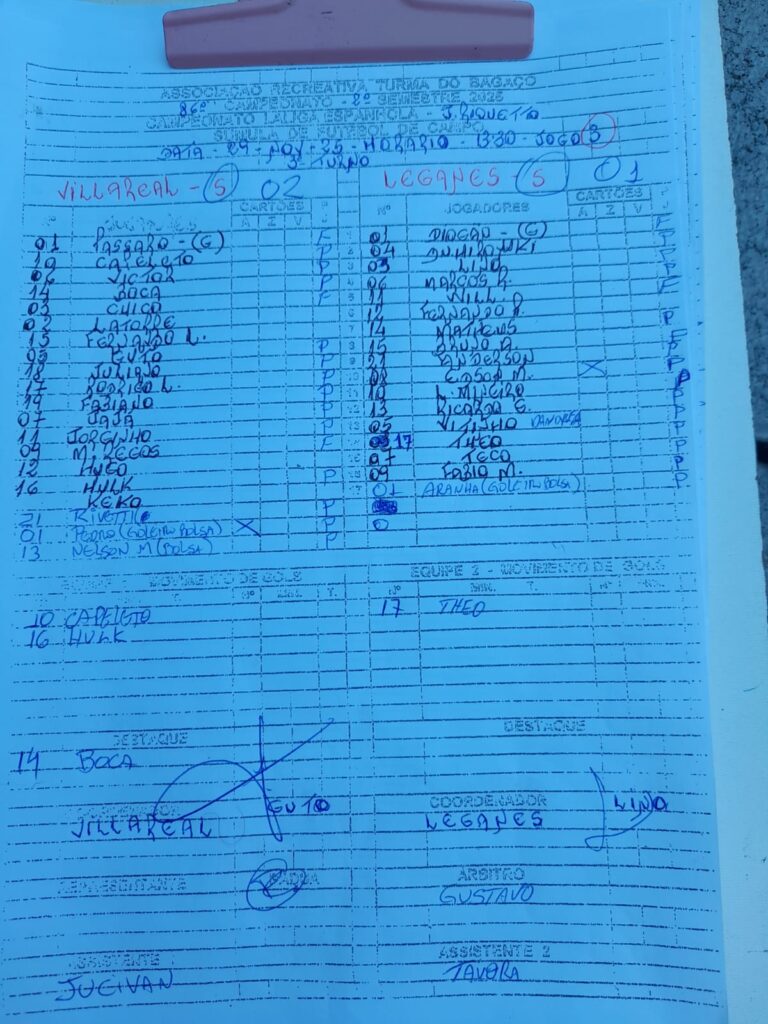 ASSOCIAÇÃO RECREATIVA TURMA DO BAGAÇO
86º CAMPEONATO - 2º SEMESTRE 2025
CAMPEONATO LALIGA ESPANHOLA - J.PIQUETTO
SÚMULA DE FUTEBOL DE CAMPO
DATA - 29 - NOV - 25 - HORARIO - 13:30 - JOGO 3
3º TURNO
VILLAREAL - 5 02
LEGANES - 5 01
CARTÕES
A Z V
Nº JOGADORES CARTÕES
A Z V
01 PASSARO - (G) F
10 CAPELETO P
06 VICTOR P
14 BOCA P
03 CHICO F
02 LATORRE
13 FERNANDO L.
05 GUTO P
18 JULIANO P
17 RODRIGO L. P
19 FABIANO P
07 JAJA P
11 JORGINHO P
09 M. REGOS F
12 HUGO
16 HULK P
KEKO
21 RIVETTI
01 PEDRO (GOLEIRO BOLSA) X P
13 NELSON M (BOLSA) P
01 DIOGÃO - (G) F
04
03 LINO
06 MARCOS R.
11 WILL.
12 FERNANDO
14 MATHEUS
15 BRUNO A.
21 ANDERSON
08 EDSON M. X
10 L. MINEIRO
13 RICARDO S.
05 VITINHO
17 THEO
07 TECO
09 FABIO M.
01 ARANHA (GOLEIRO BOLSA)
0
MOVIMENTO DE GOLS
Nº MIN. T.
10 CAPELETO
16 HULK
EQUIPE 2 - MOVIMENTO DE GOLS
Nº MIN. T.
17 THEO
DESTAQUE
14 BOCA
DESTAQUE
VILLAREAL GUTO
COORDENADOR
LEGANES LINO
REPRESENTANTE
ARBITRO
GUSTAVO
ASSISTENTE
JUCIVAN
ASSISTENTE 2
TAVARA